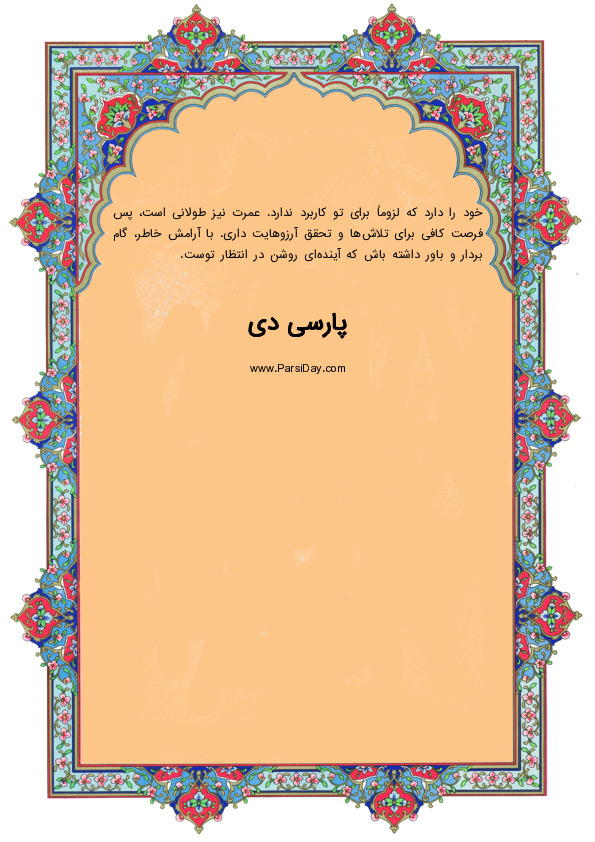 خود را دارد که لزوماً برای تو کاربرد ندارد. عمرت نیز طولانی است، پس
فرصت کافی برای تلاش‌ها و تحقق آرزوهایت داری. با آرامش خاطر، گام
بردار و باور داشته باش که آینده‌ای روشن در انتظار توست.
پارسی دی
www.ParsiDay.com